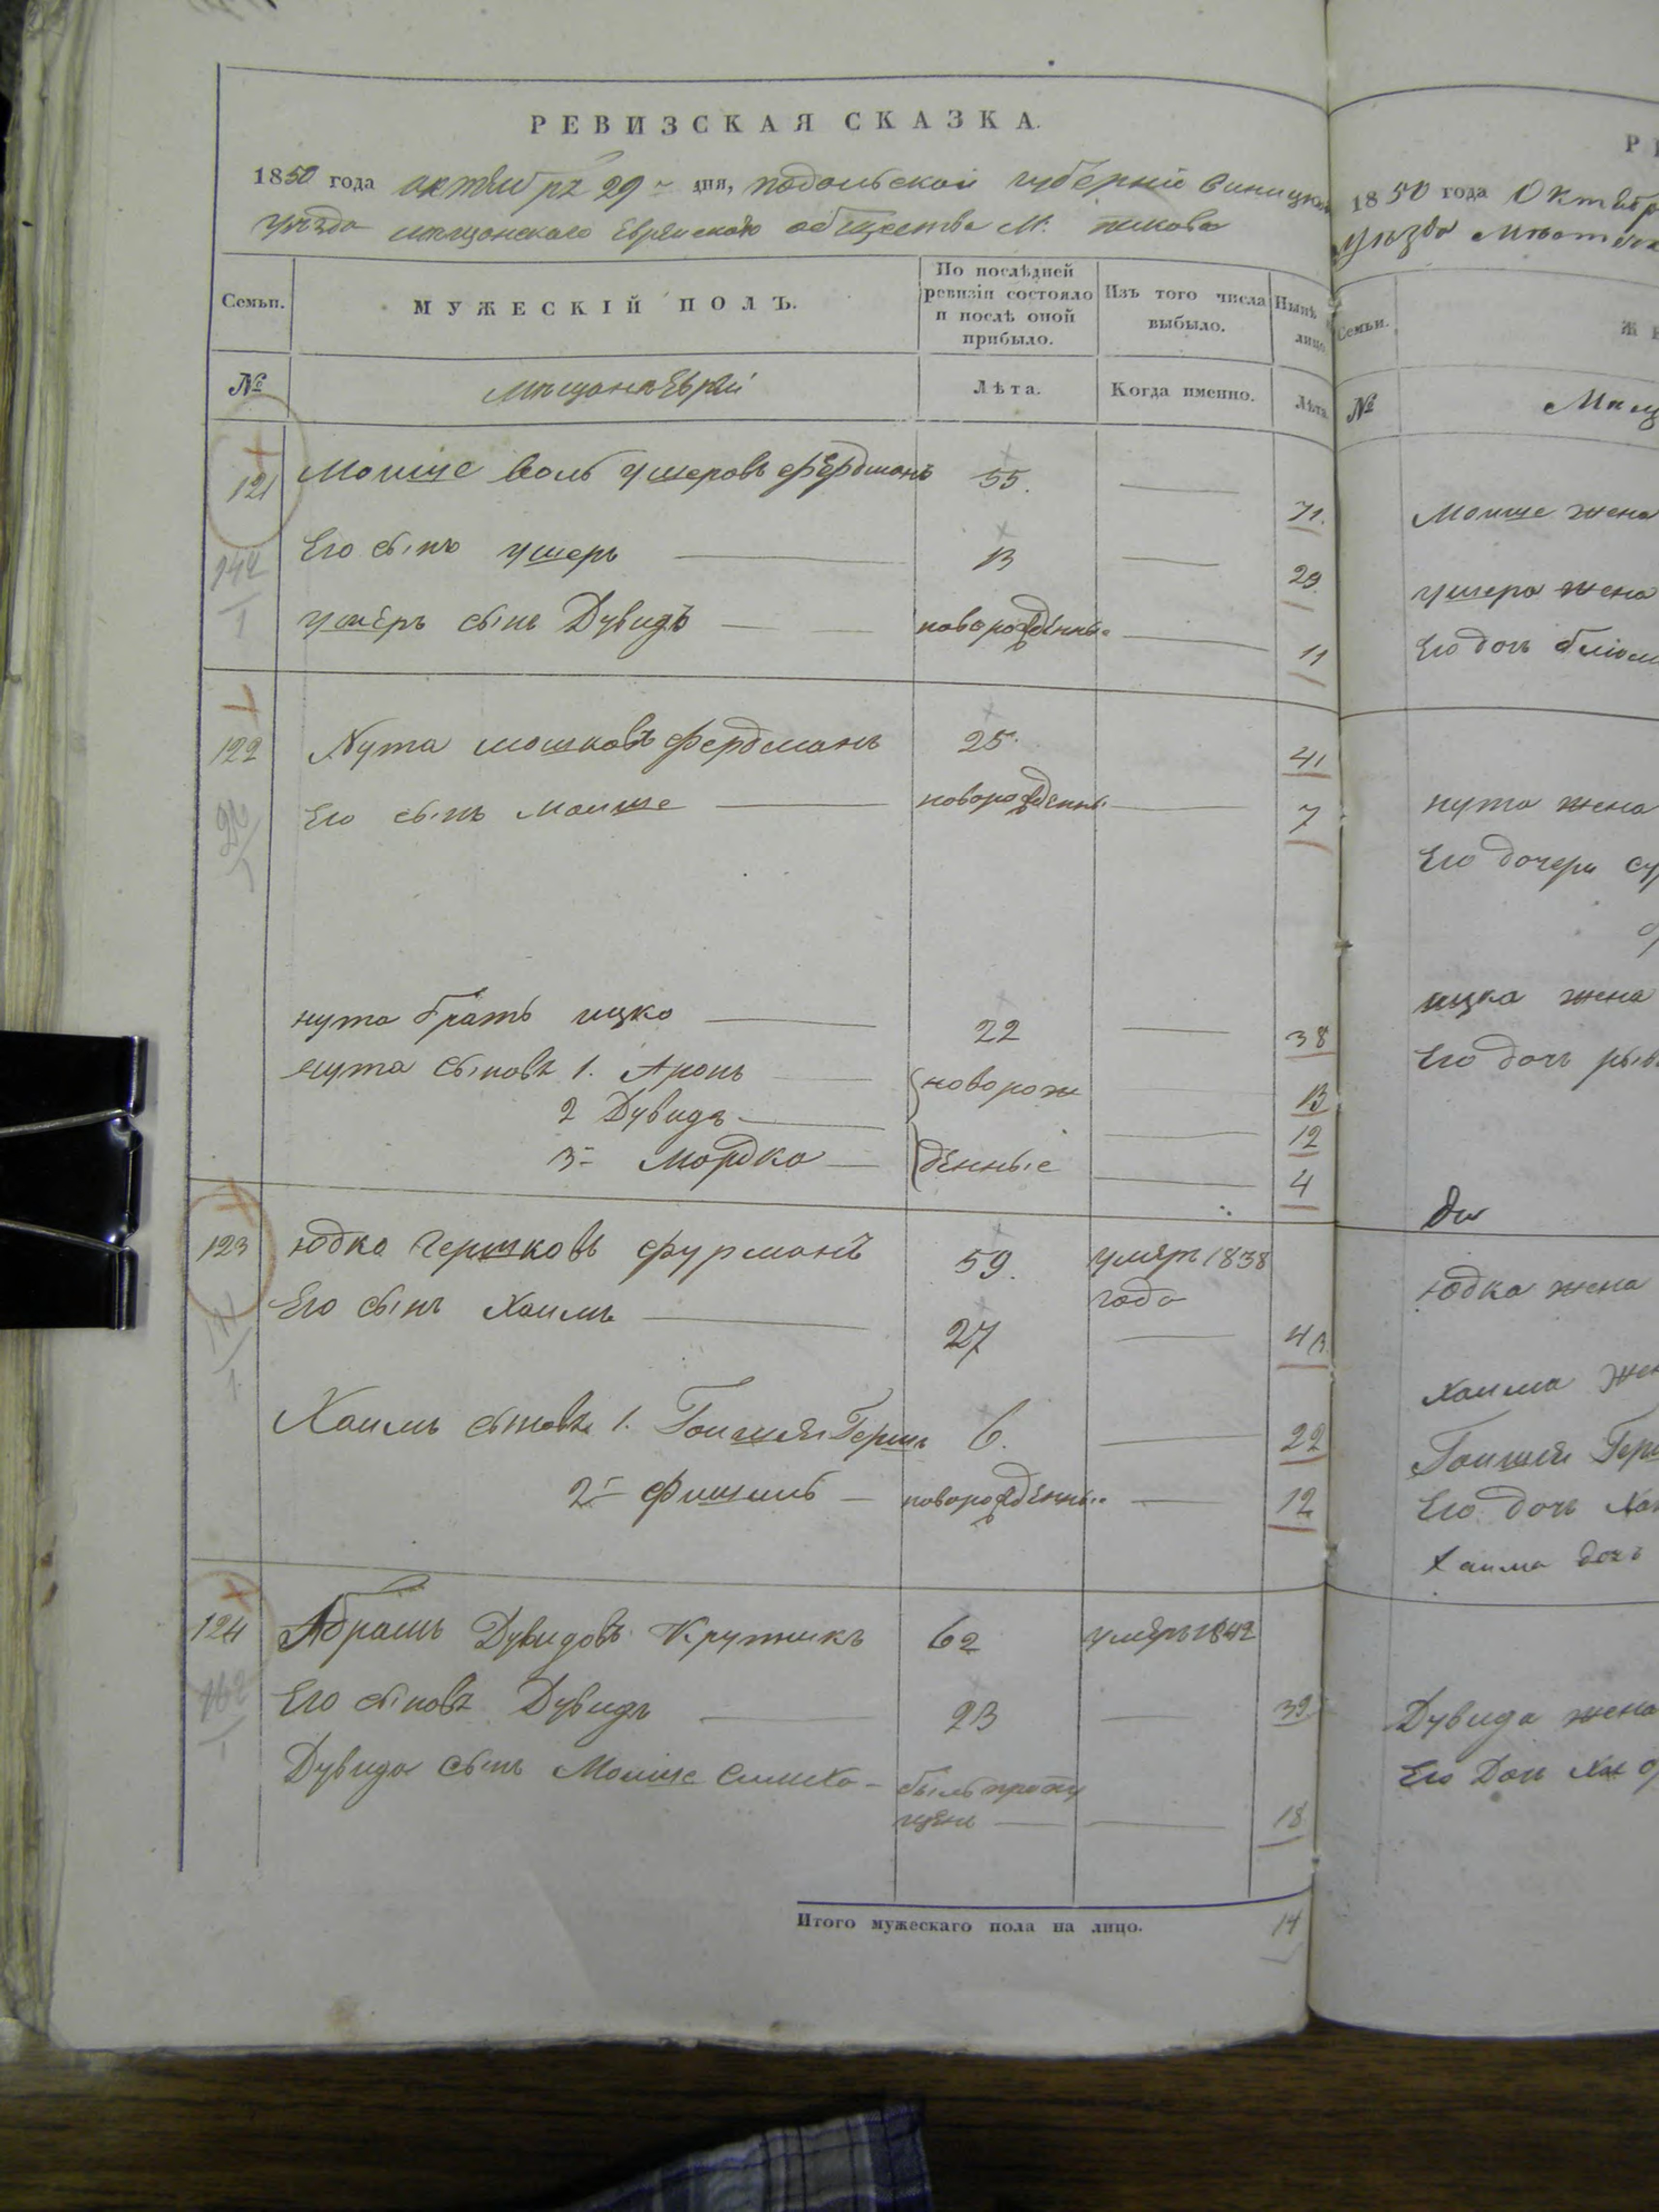 РЕВИЗСКАЯ СКАЗКА.
1850 года октября 29 дня, подольской губерніи виницкаго
уѣзда мѣщанскаго Еврейскаго общества М.
Семьи.
МУЖЕСКІЙ ПОЛЪ.
По послѣдней ревизіи состояло и послѣ оной прибыло.
Изъ того числа выбыло.
Нынѣ лицо
№
мѣщане Евреи
Лѣта.
Когда именно.
Лѣта
121 Моише Воль Ушеровъ Фердманъ 55. 71.
142
1
Его сынъ Ушеръ 13 29
Ушеръ сынъ Дувидъ новорожденны 11
122 Нута мошковъ Фердманъ 25. 41
Его сынъ Моише новорожденны 7
нута братъ ицко 22 38
нута сыновя 1. Аронъ новорож 13
2 Дувидъ 12
3 Мордко денные 4
123 Юдко Гершковъ Фурманъ 59. умеръ 1838
года
Его сынъ Хаимъ 27 43
Хаимъ сыновя 1. Гершъ 6. 22
2 Фишель новорожденны 12
124 Абрамъ Дувидовъ Крутикъ 62 умеръ 1842
162
1
Его сыновя Дувидъ 23 39
Дувида сынъ Моише Симха былъ пропу
щенъ 18
Итого мужескаго пола на лицо. 14
РЕ
1850 года Октябр
уѣзда
Семьи.
Ж
№
Мѣщ
Моише жена
Ушера жена
Его дочь
нута жена
Его дочери Су
ицка жена
Его дочь рыв
Юдка жена
Хаима жен
Герш
Его дочь Хая
Хаима дочь
Дувида жена
Его Дочь